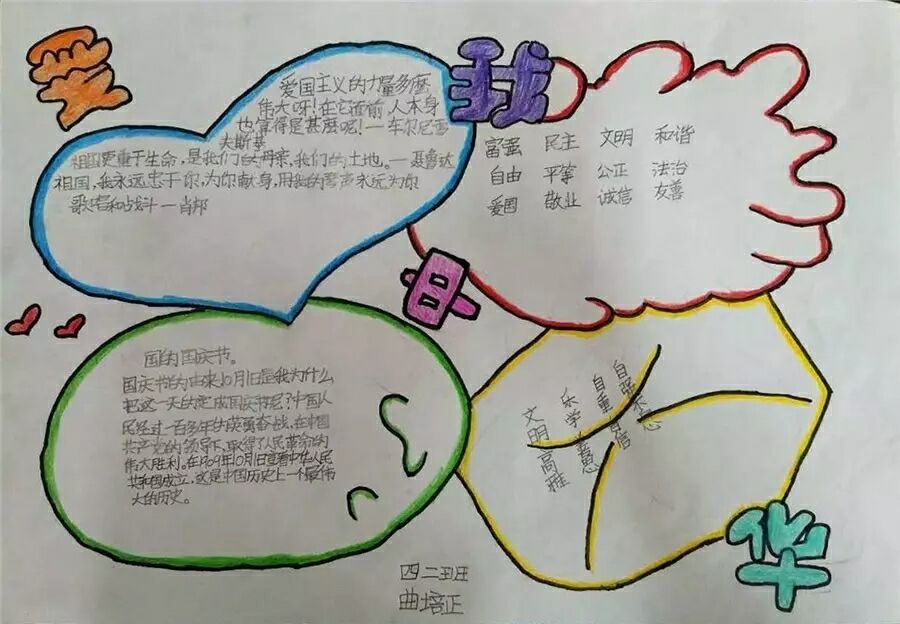 爱
我
中
华
爱国主义的力量多麽
伟大呀!在它面前,人本身
也算得是甚麽呢!一车尔尼雪
夫斯基
祖国更重于生命,是我们的母亲,我们的土地。一聂鲁达
祖国,我永远忠于你,为你献身,用我的琴声永远为你
歌唱和战斗一肖邦
富强 民主 文明 和谐
自由 平等 公正 法治
爱国 敬业 诚信 友善
国的国庆节。
国庆节的由来10月1日是我为什么
把这一天的定成国庆节呢?中国人
民经过一百多年的英勇奋战,在中国
共产党的领导下,取得了人民革命的
伟大胜利。在1949年10月1日宣中华人民
共和国成立,这是中国历史上一个最伟
大的历史。
文明高雅
乐学善思
自重自信
自强不息
四二班
曲培正